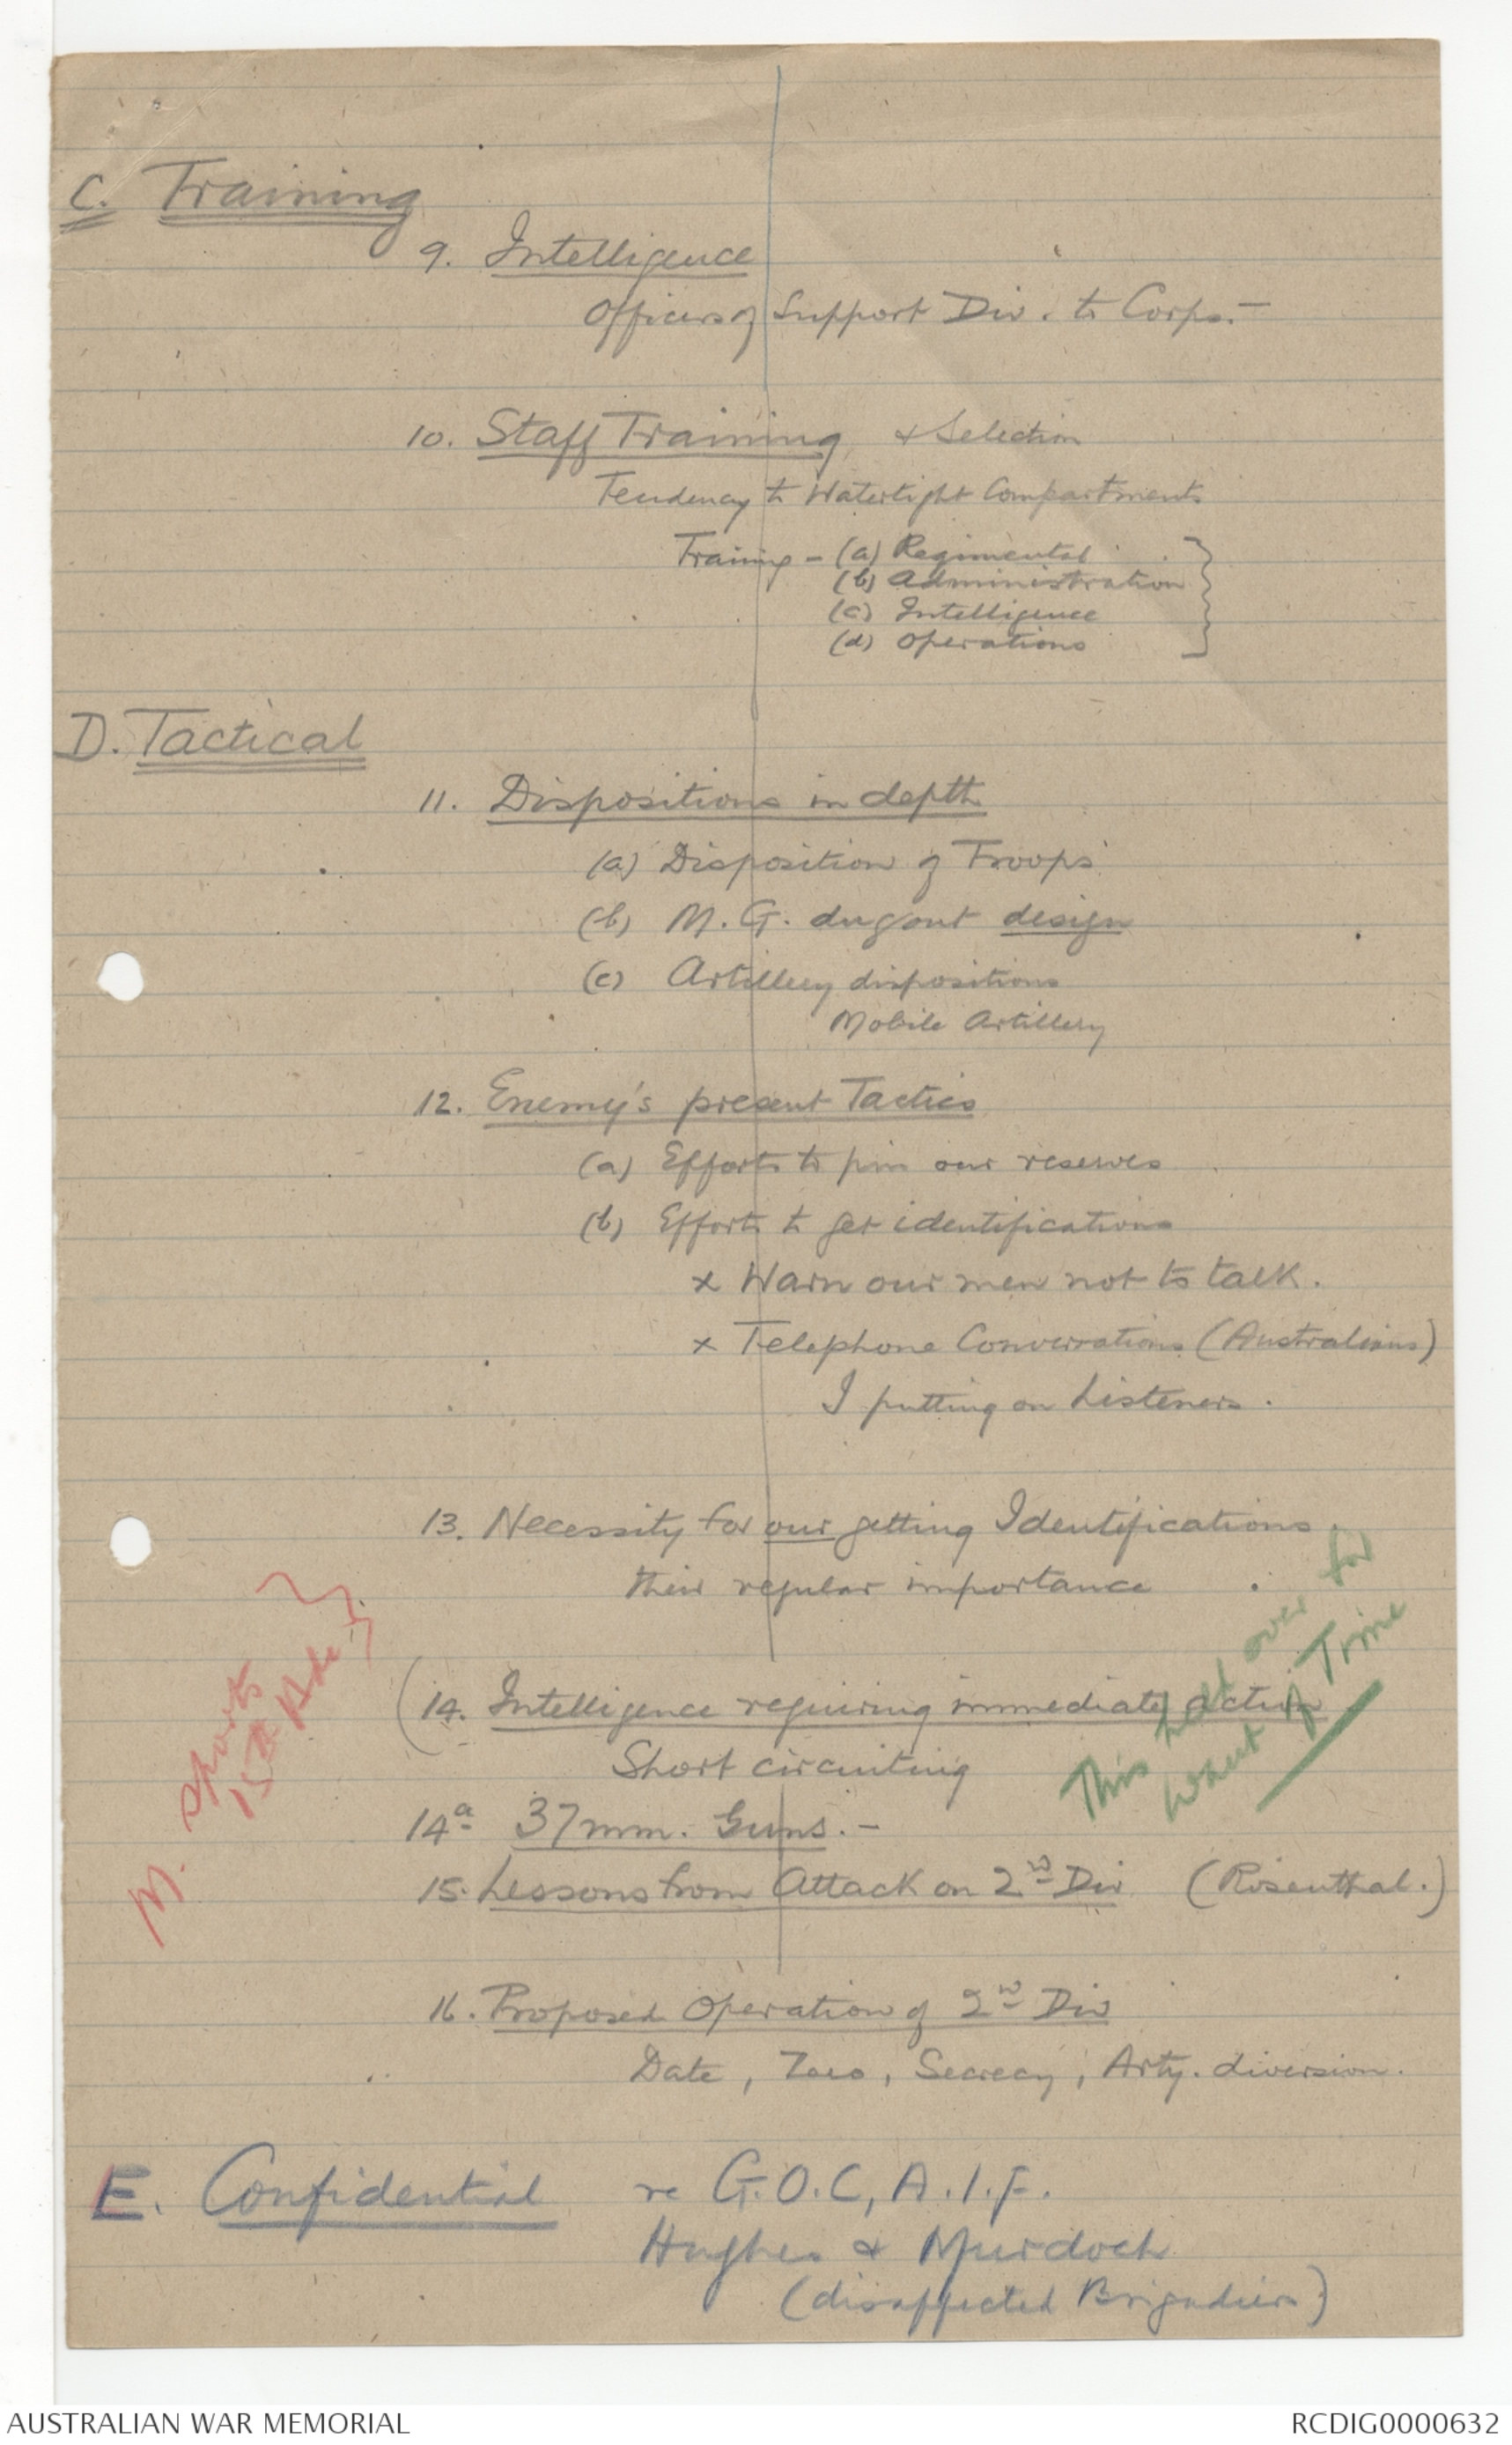 C. Training
9. Intelligence
Officers of Support Div. to Corps. -
10. Staff Training & Selection
Tendency to Watertight Compartments
Training - (a) Regimental
(b) Administration
(c) Intelligence
(d) Operations
D. Tactical
11. Dispositions in depth
(a) Disposition of Troops
(b) M.G. dugout design
(c) Artillery dispositions
Mobile Artillery
12. Enemy's present Tactics
(a) Efforts to pin our reserves
(b) Efforts to get identifications
x Warn our men not to talk.
x Telephone Conversations (Australians)
I putting on Listeners.
13. Necessity for our getting Identifications.
their regular importance
(14. Intelligence requiring immediate action
Short circuiting
This held over for
want of Time
14a 37mm. Guns. -
15. Lessons from Attack on 2nd Div (Rosenthal.)
M. Sports
15th Bde
16. Proposed Operation of 2nd Div
Date, Zero, Secrecy, Arty. diversion.
E. Confidential re G.O.C, A.I.F.
Hughes & Murdoch
(disaffected Brigadiers)
AUSTRALIAN WAR MEMORIAL
RCDIG0000632